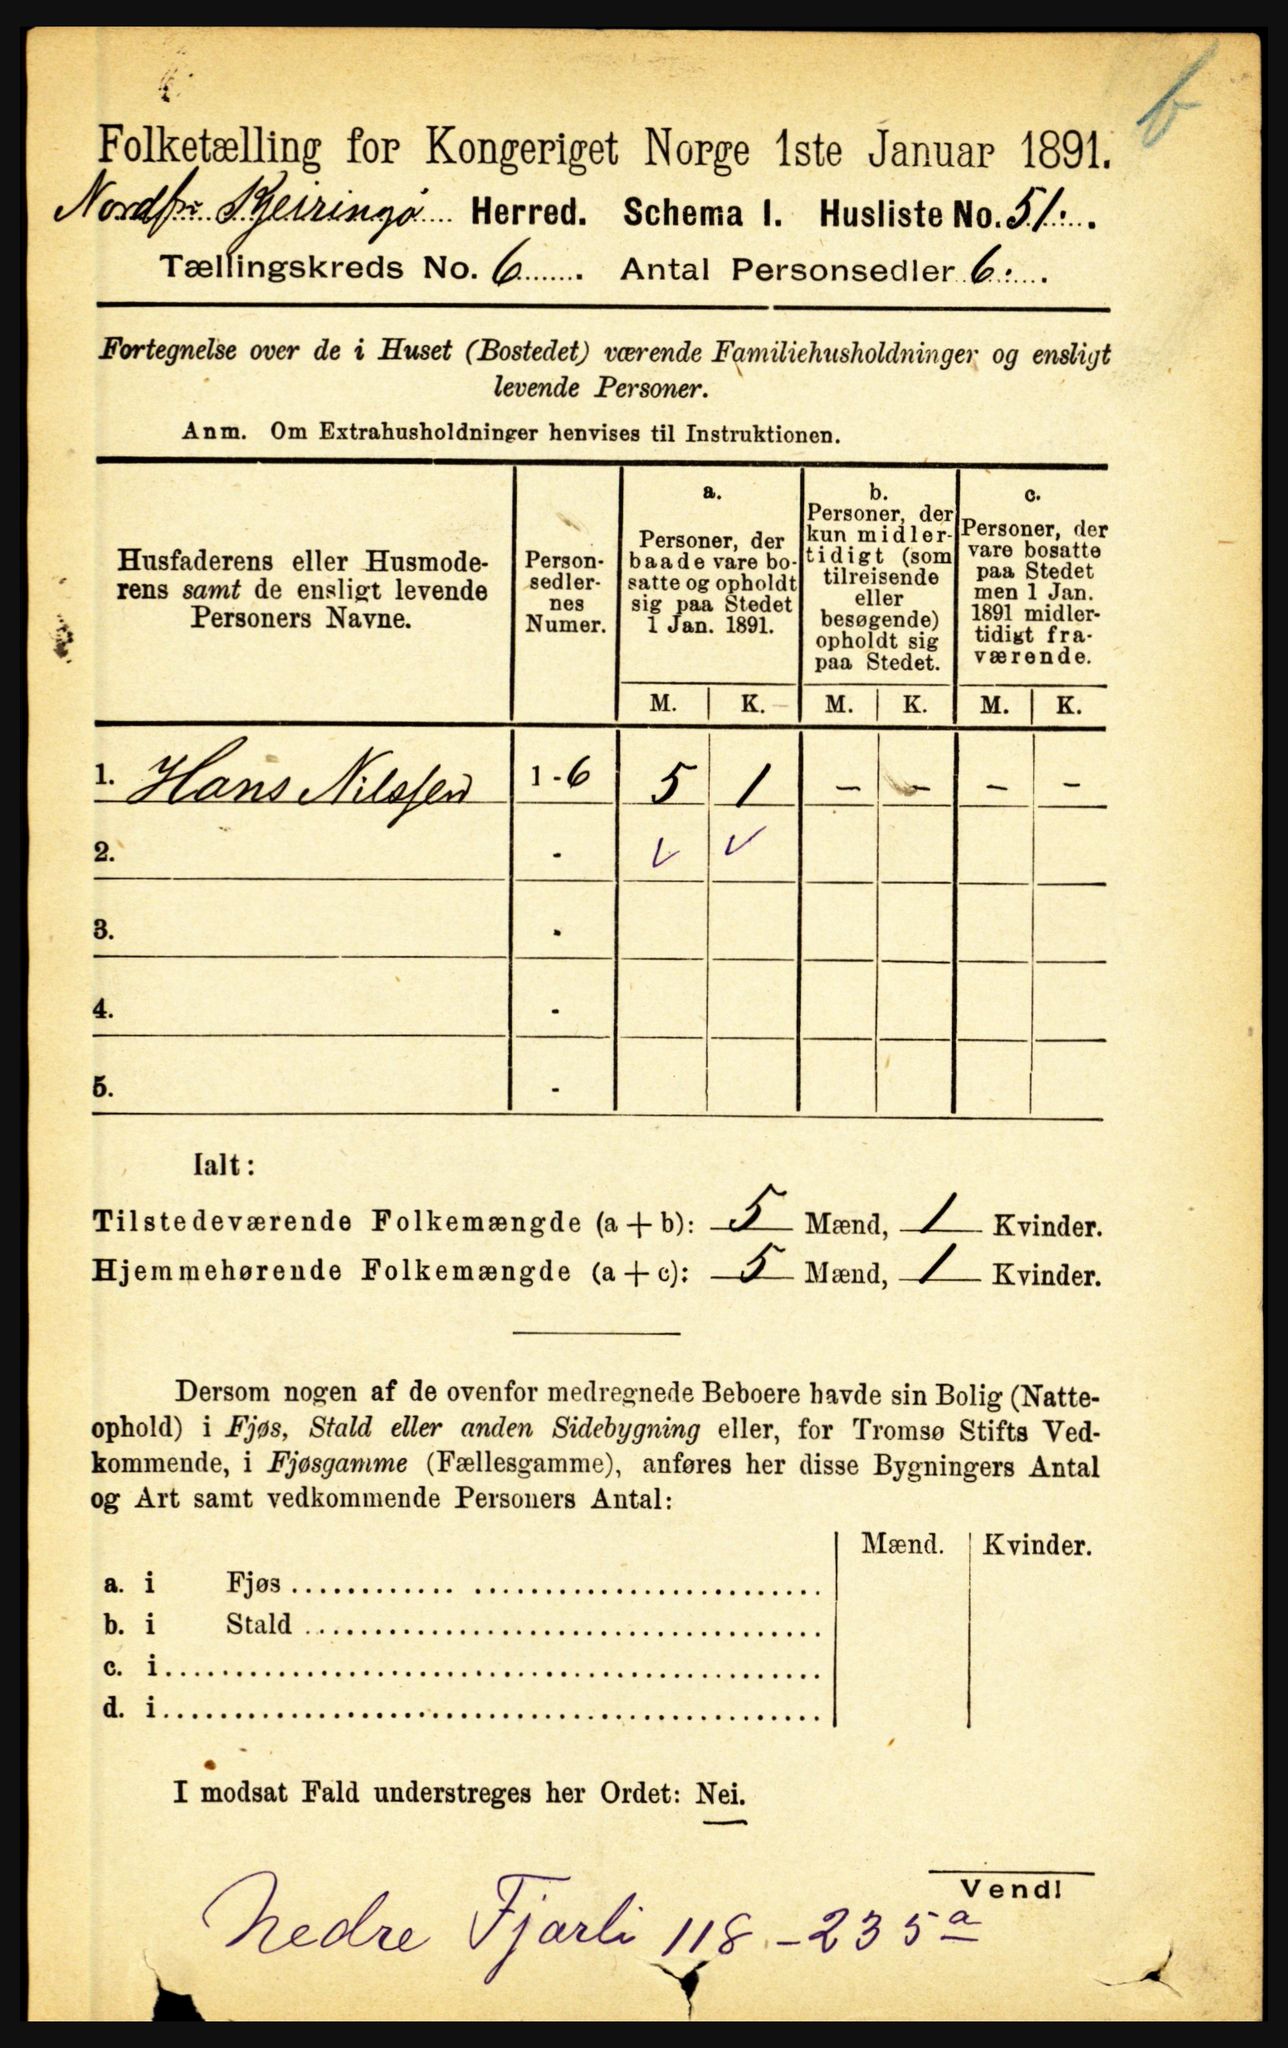 b
Folketælling for Kongeriget Norge 1ste Januar 1891.
Nordfr Kjeiringø Herred. Schema I. Husliste No. 51.
Tællingskreds No. 6 . Antal Personsedler 6.
Fortegnelse over de i Huset (Bostedet) værende Familiehusholdninger og ensligt
levende Personer.
Anm. Om Extrahusholdninger henvises til Instruktionen.
Husfaderens eller Husmode-
rens samt de ensligt levende
Personers Navne.
Person-
sedler-
nes
Numer.
a.
Personer, der
baade vare bo-
satte og opholdt
sig paa Stedet
1 Jan. 1891.
b.
Personer, der
kun midler-
tidigt (som
tilreisende
eller
besøgende)
opholdt sig
paa Stedet.
c.
Personer, der
vare bosatte
paa Stedet
men 1 Jan.
1891 midler-
tidigt fra-
værende.
M. K. M. K. M. K.
1. Hans Nilssen 1 - 6 5 1 - - - -
2. - ✓ ✓
3. -
4. -
5. -
Ialt:
Tilstedeværende Folkemængde (a + b): 5 Mænd, 1 Kvinder.
Hjemmehørende Folkemængde (a + c): 5 Mænd, 1 Kvinder.
Dersom nogen af de ovenfor medregnede Beboere havde sin Bolig (Natte-
ophold) i Fjøs, Stald eller anden Sidebygning eller, for Tromsø Stifts Ved-
kommende, i Fjøsgamme (Fællesgamme), anføres her disse Bygningers Antal
og Art samt vedkommende Personers Antal:
Mænd. Kvinder.
a. i Fjøs
b. i Stald
c. i
d. i
I modsat Fald understreges her Ordet: Nei.
Vend!
Nedre Fjærli 118 - 235 a